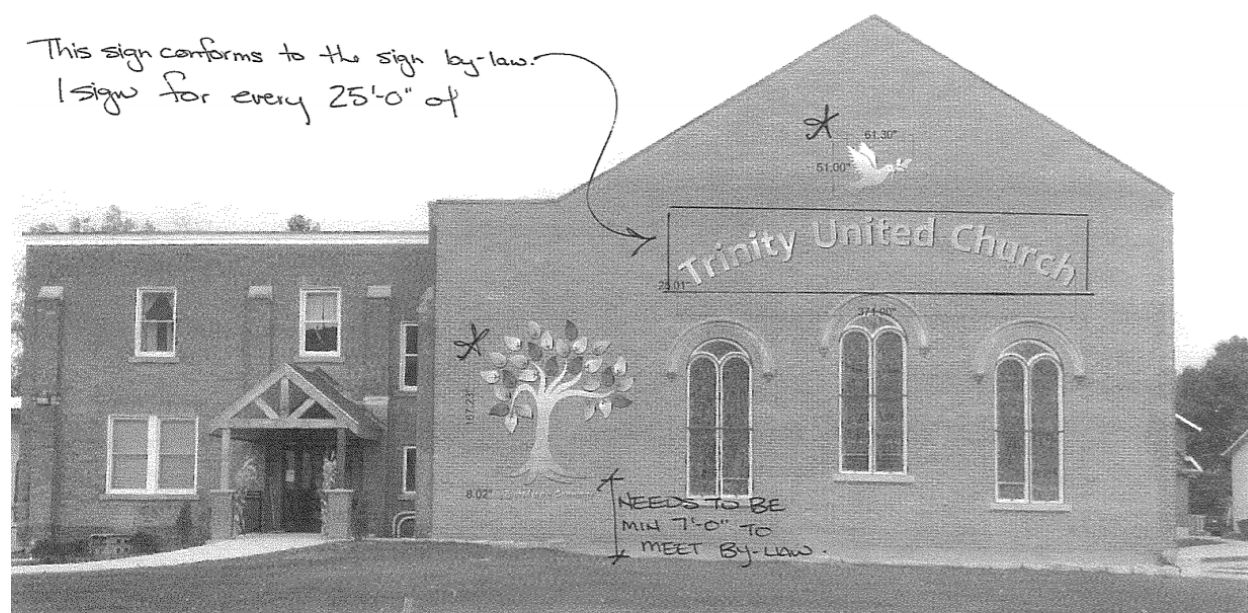 This sign conforms to the sign by-law.
1 sign for every 25'-0" of
61.30"
51.00"
Trinity United Church
25.01"
374.00"
167.23"
8.02"
NEEDS TO BE
MIN 7'-0" TO
MEET BY-LAW.